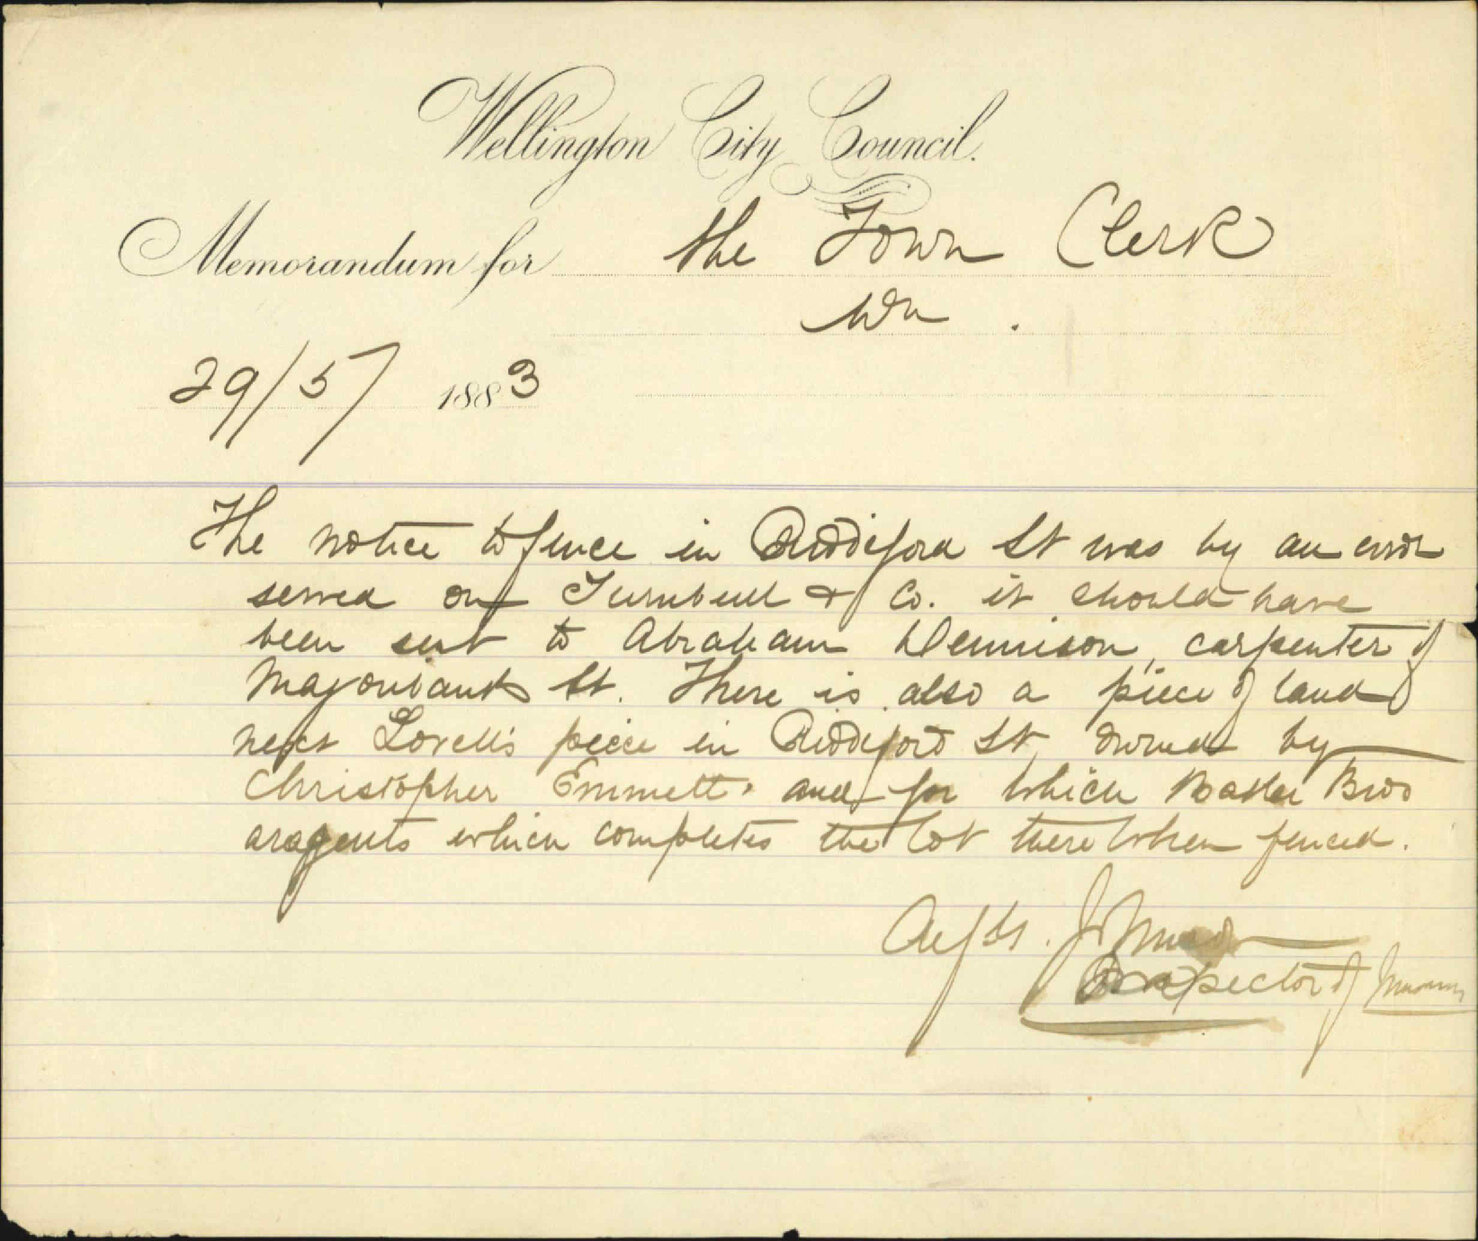 Wellington City Council.
Memorandum for the Town Clerk
Wn.
29/5/ 1883
The notice to fence in Riddiford St was by an error
served on Turnbull & Co. it should have
been sent to Abraham Dennison, carpenter of
Majoribanks St. There is also a piece of land
next Lovell's piece in Riddiford St owned by
Christopher Emmett. and for which Baker Bros
are agents which completes the lot there when fenced.
Inspector of